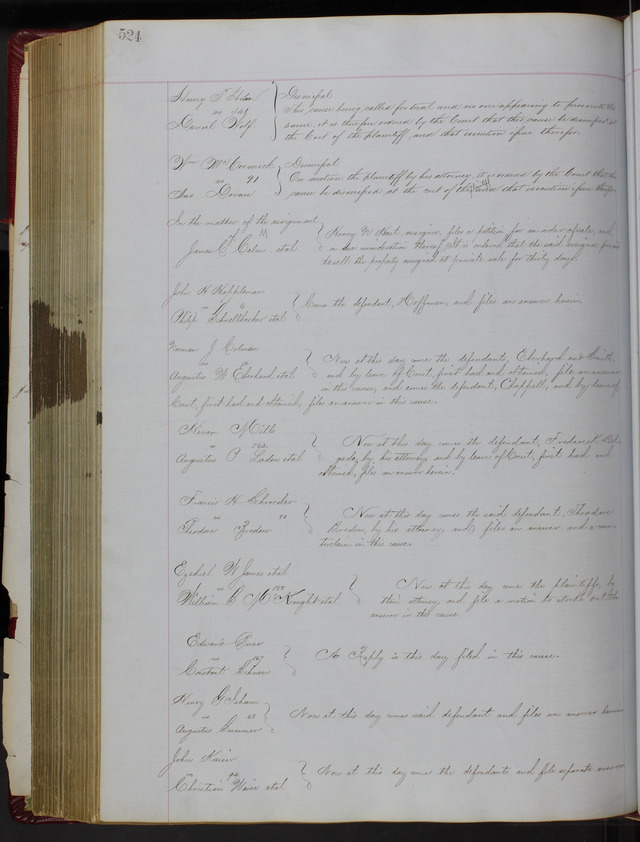 524
Dismissal
This cause being called for trial and no one appearing to prosecute the
same, it is therefore ordered by the Court that this cause be dismissed at
the Cost of the plaintiff, and that execution issue therefor.
Henry S
vs
Daniel Wolf.
Wm McCormick
vs 91
Dismissal
On motion the plaintiff by his attorney, it is ordered by the Court that this
cause be dismissed at the cost of that execution issue therefor
In the matter of the assignment
of
James C et al
Henry W assignee, files a petition for an order of sale, and
It is ordered that the said assignee
to sell the property assigned at private sale for thirty days.
John H
vs
Philip et al
Comes the defendant, Hoffman, and files an answer herein.
Norman J Colman
vs
Augustus W Eberhard et al
Now at this day come the defendants, Eberhard and Smith,
and by leave of Court, first had and obtained, file an answer
in this cause, and comes the defendant, Chappell, and by leave of
Court, first had and obtained, files an answer in this cause.
Mills
vs
Augustus et al
Now at this day comes the defendant, Frederick
by his attorney and by leave of Court, first had and
obtained, files an answer herein.
Francis H Schroeder
vs
Theodore Bredow
Now at this day comes the said defendant, Theodore
Bredow, by his attorney, and files an answer and a coun-
terclaim in this cause.
Ezekiel W James et al
vs
William C McKnight et al
Now at this day come the plaintiffs, by
their attorney, and file a motion to strike out the
answer in this cause.
Edward
vs
Constant
A Reply is this day filed in this cause.
Henry G Isham
vs
Augustus Summer
Now at this day comes said defendant and files an answer herein
John Kaiser
vs
Christian et al
Now at this day come the defendants and file separate